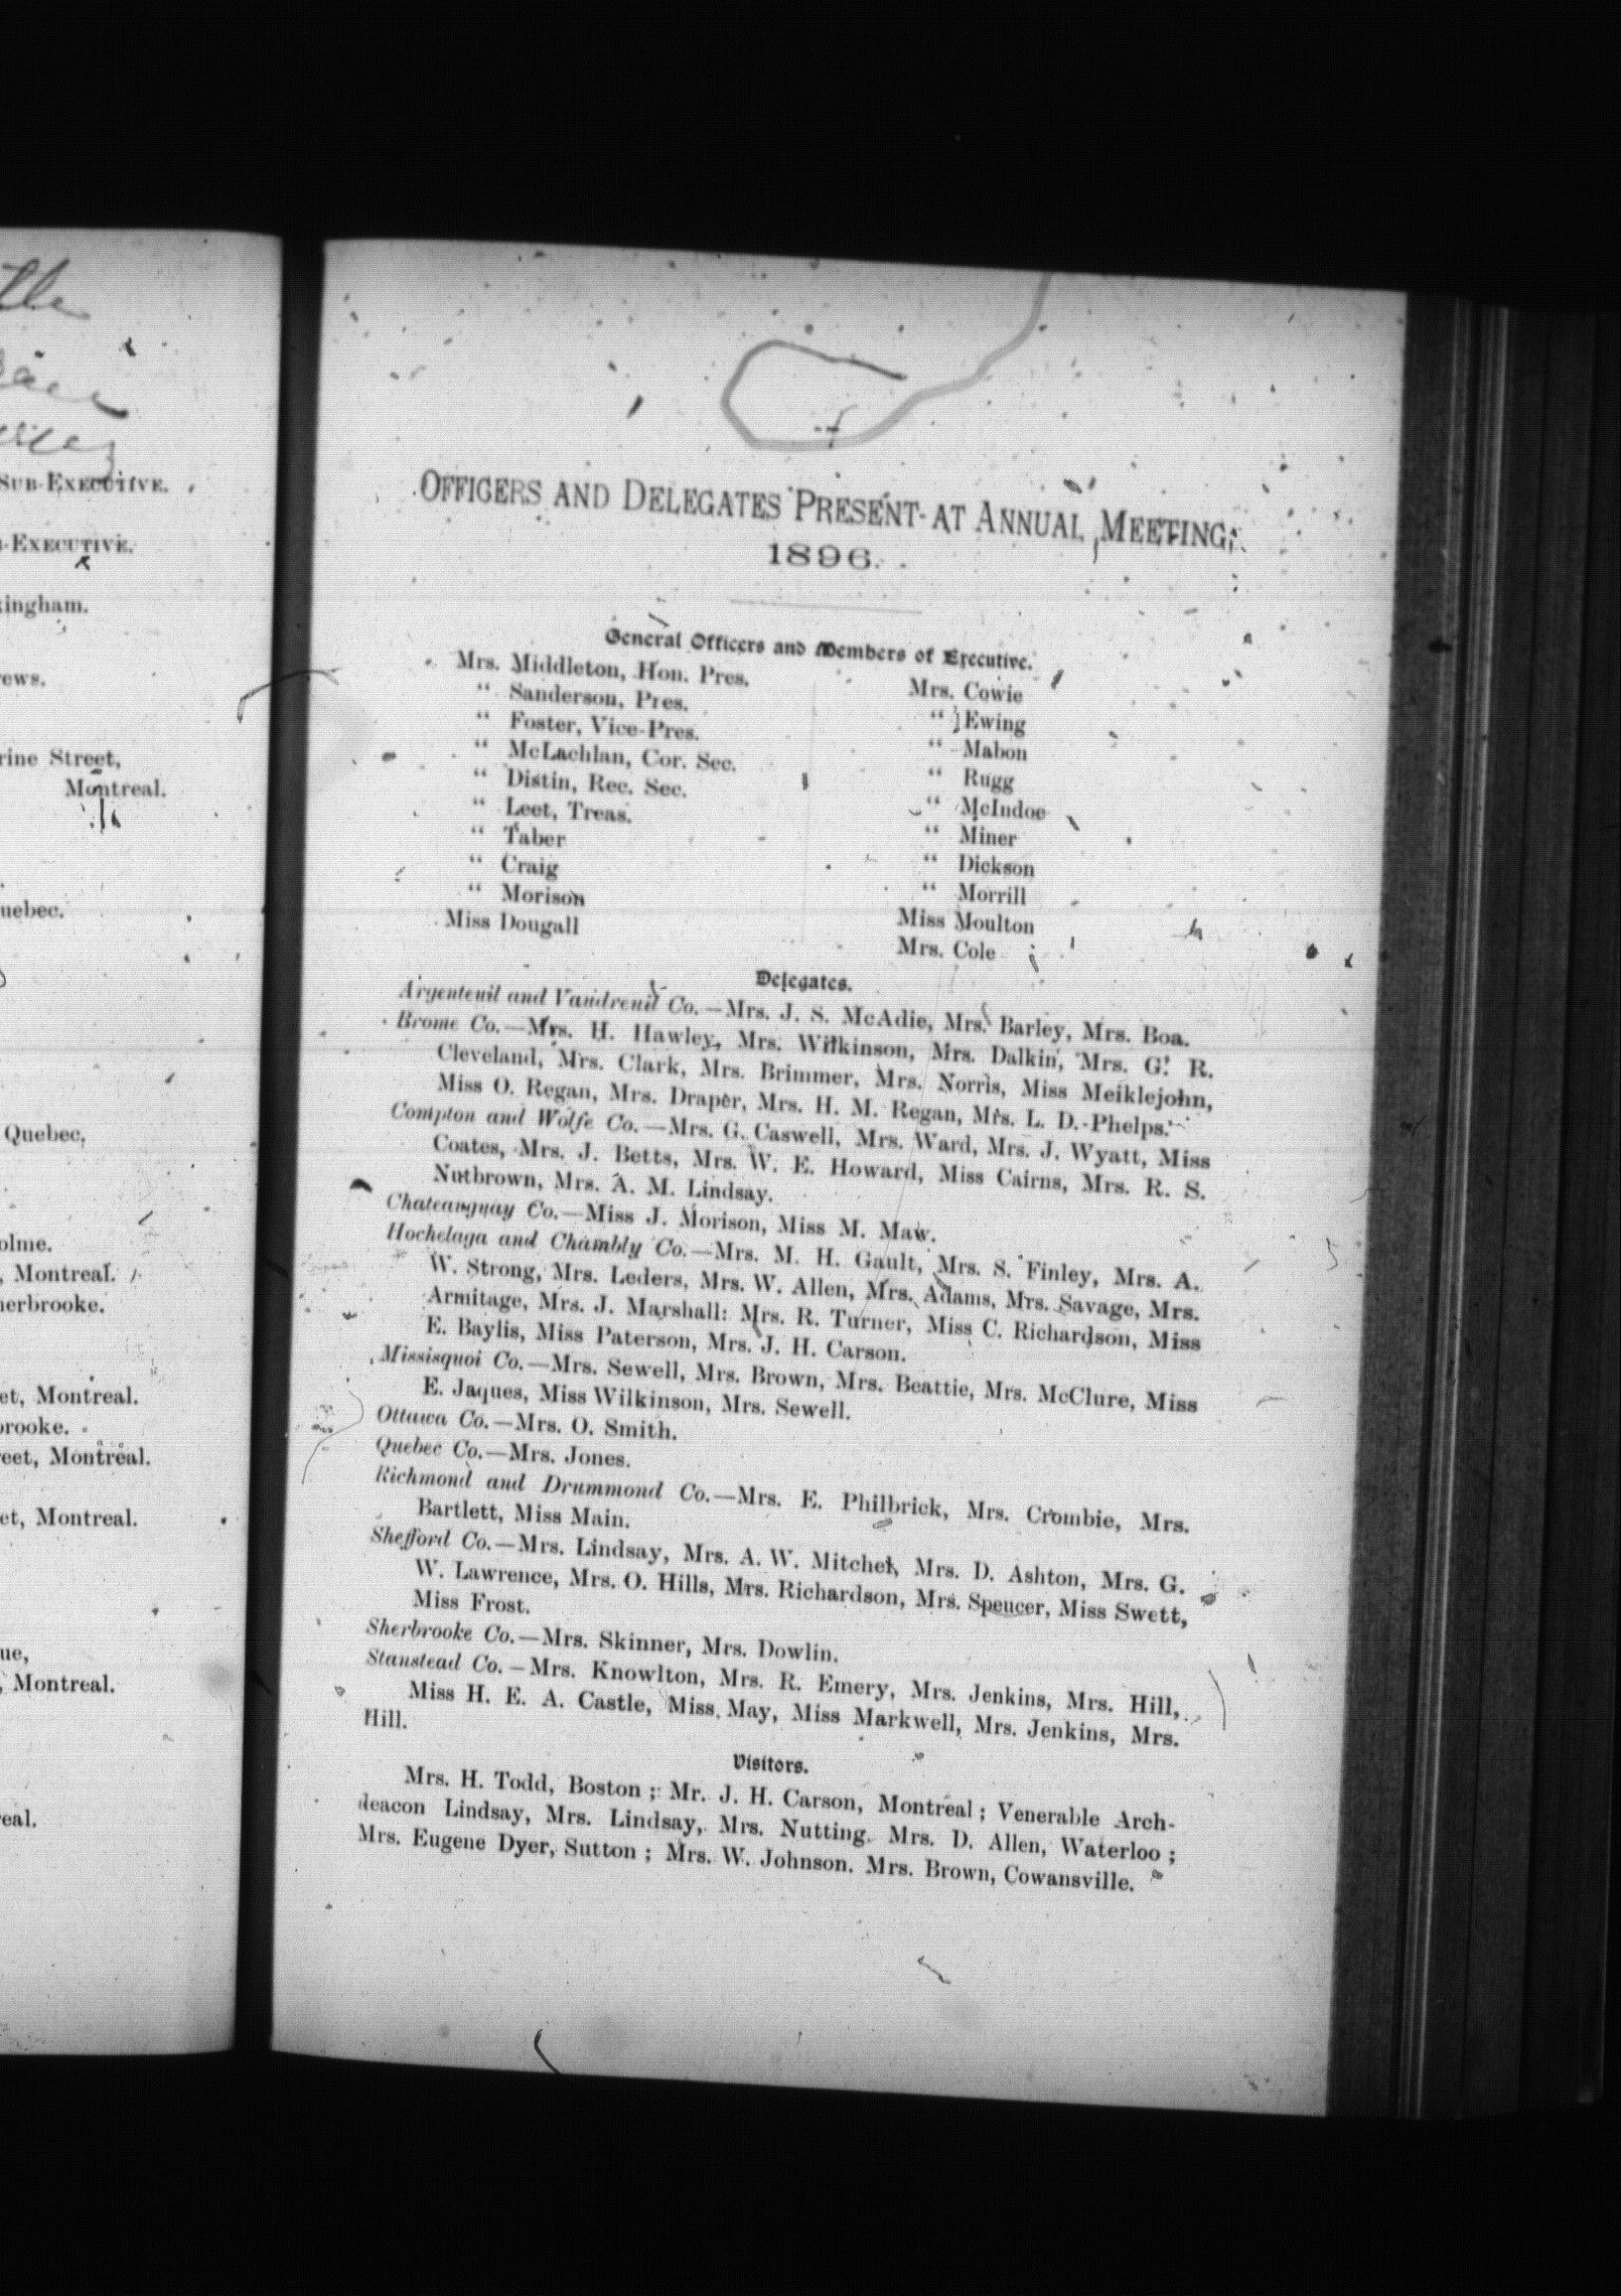 Sub-Executive.
Executive.
ingham.
ews.
rine Street,
Montreal.
uebec.
Quebec,
olme.
, Montreal.
herbrooke.
et, Montreal.
brooke.
eet, Montreal.
et, Montreal.
ue,
, Montreal.
eal.
Officers and Delegates Present at Annual Meeting,
1896.
General Officers and Members of Executive.
Mrs. Middleton, Hon. Pres.
“ Sanderson, Pres.
“ Foster, Vice-Pres.
“ McLachlan, Cor. Sec.
“ Distin, Rec. Sec.
“ Leet, Treas.
“ Taber
“ Craig
“ Morison
Miss Dougall
Mrs. Cowie
“ Ewing
“ Mabon
“ Rugg
“ McIndoe
“ Miner
“ Dickson
“ Morrill
Miss Moulton
Mrs. Cole
Delegates.
Argenteuil and Vaudreuil Co.—Mrs. J. S. McAdie, Mrs. Barley, Mrs. Boa.
Brome Co.—Mrs. H. Hawley, Mrs. Wilkinson, Mrs. Dalkin, Mrs. G. R.
Cleveland, Mrs. Clark, Mrs. Brimmer, Mrs. Norris, Miss Meiklejohn,
Miss O. Regan, Mrs. Draper, Mrs. H. M. Regan, Mrs. L. D. Phelps.
Compton and Wolfe Co.—Mrs. G. Caswell, Mrs. Ward, Mrs. J. Wyatt, Miss
Coates, Mrs. J. Betts, Mrs. W. E. Howard, Miss Cairns, Mrs. R. S.
Nutbrown, Mrs. A. M. Lindsay.
Chateauguay Co.—Miss J. Morison, Miss M. Maw.
Hochelaga and Chambly Co.—Mrs. M. H. Gault, Mrs. S. Finley, Mrs. A.
W. Strong, Mrs. Leders, Mrs. W. Allen, Mrs. Adams, Mrs. Savage, Mrs.
Armitage, Mrs. J. Marshall: Mrs. R. Turner, Miss C. Richardson, Miss
E. Baylis, Miss Paterson, Mrs. J. H. Carson.
Missisquoi Co.—Mrs. Sewell, Mrs. Brown, Mrs. Beattie, Mrs. McClure, Miss
E. Jaques, Miss Wilkinson, Mrs. Sewell.
Ottawa Co.—Mrs. O. Smith.
Quebec Co.—Mrs. Jones.
Richmond and Drummond Co.—Mrs. E. Philbrick, Mrs. Crombie, Mrs.
Bartlett, Miss Main.
Shefford Co.—Mrs. Lindsay, Mrs. A. W. Mitchel, Mrs. D. Ashton, Mrs. G.
W. Lawrence, Mrs. O. Hills, Mrs. Richardson, Mrs. Speucer, Miss Swett,
Miss Frost.
Sherbrooke Co.—Mrs. Skinner, Mrs. Dowlin.
Stanstead Co.—Mrs. Knowlton, Mrs. R. Emery, Mrs. Jenkins, Mrs. Hill,
Miss H. E. A. Castle, Miss May, Miss Markwell, Mrs. Jenkins, Mrs.
Hill.
Visitors.
Mrs. H. Todd, Boston ; Mr. J. H. Carson, Montreal ; Venerable Arch-
deacon Lindsay, Mrs. Lindsay, Mrs. Nutting. Mrs. D. Allen, Waterloo ;
Mrs. Eugene Dyer, Sutton ; Mrs. W. Johnson. Mrs. Brown, Cowansville.